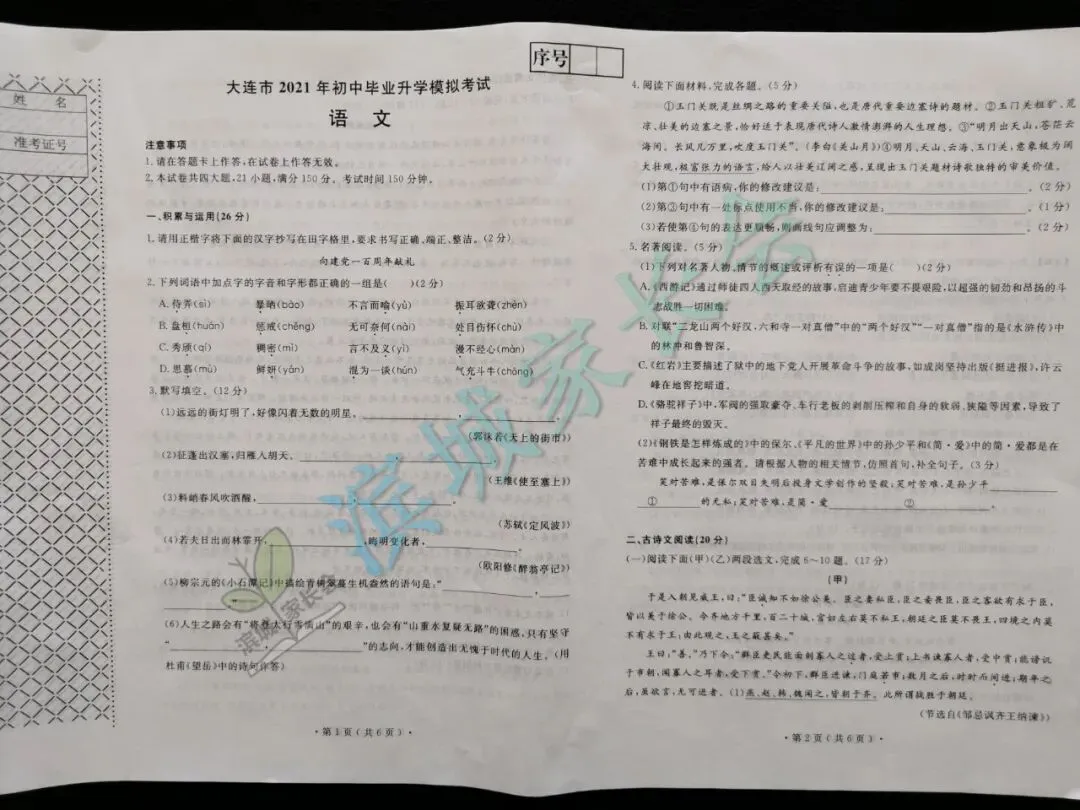 序号
姓 名
准考证号
大连市 2021 年初中毕业升学模拟考试
语 文
注意事项
1.请在答题卡上作答,在试卷上作答无效。
2.本试卷共四大题,21小题,满分150分。考试时间150分钟。
一、积累与运用(26分)
1.请用正楷字将下面的汉字抄写在田字格里,要求书写正确、端正、整洁。(2分)
向建党一百周年献礼
2.下列词语中加点字的字音和字形都正确的一组是( )(2分)
A.侍弄(sì) 暴晒(bào) 不言而喻(yù) 振耳欲聋(zhèn)
B.盘桓(huán) 惩戒(chěng) 无可奈何(nài) 处目伤怀(chù)
C.秀颀(qí) 稠密(mì) 言不及义(yì) 漫不经心(màn)
D.思慕(mù) 鲜妍(yán) 混为一谈(hún) 气充斗牛(chōng)
3.默写填空。(12分)
(1)远远的街灯明了,好像闪着无数的明星。 , 。
(郭沫若《天上的街市》)
(2)征蓬出汉塞,归雁入胡天。 , 。
(王维《使至塞上》)
(3)料峭春风吹酒醒, , 。
(苏轼《定风波》)
(4)若夫日出而林霏开, ,晦明变化者, 。
(欧阳修《醉翁亭记》)
(5)柳宗元的《小石潭记》中描绘青树翠蔓生机盎然的语句是:“
, 。”
(6)人生之路会有“将登太行雪满山”的艰辛,也会有“山重水复疑无路”的困惑,只有坚守
“ , ”的志向,才能创造出无愧于时代的人生。(用
杜甫《望岳》中的诗句作答)
·第1页(共6页)·
4.阅读下面材料,完成各题。(5分)
①玉门关既是丝绸之路的重要关隘,也是唐代重要边塞诗的题材。②玉门关粗犷、荒
凉、壮美的边塞之景,恰好适于表现唐代诗人激情澎湃的人生理想。③“明月出天山,苍茫云
海间。长风几万里,吹度玉门关”。(李白《关山月》)④明月、天山、云海、玉门关,意象极为阔
大壮观,极富张力的语言,给人以壮美辽阔之感,呈现出玉门关题材诗歌独特的审美价值。
(1)第①句中有语病,你的修改建议是: 。(2分)
(2)第③句中有一处标点使用不当,你的修改建议是: 。(1分)
(3)若使第④句的表达更顺畅,则画线句应调整为: 。(2分)
5.名著阅读。(5分)
(1)下列对名著人物、情节的概述或评析有误的一项是( )(2分)
A.《西游记》通过师徒四人西天取经的故事,启迪青少年要不畏艰险,以超强的韧劲和昂扬的斗
志战胜一切困难。
B.对联“二龙山两个好汉,六和寺一对真僧”中的“两个好汉”“一对真僧”指的是《水浒传》中
的林冲和鲁智深。
C.《红岩》主要描述了狱中的地下党人开展革命斗争的故事,如成岗坚持出版《挺进报》,许云
峰在地窖挖暗道。
D.《骆驼祥子》中,军阀的强取豪夺、车行老板的剥削压榨和自身的软弱、狭隘等因素,导致了
祥子最终的毁灭。
(2)《钢铁是怎样炼成的》中的保尔、《平凡的世界》中的孙少平和《简·爱》中的简·爱都是在
苦难中成长起来的强者。请根据人物的相关情节,仿照首句,补全句子。(3分)
笑对苦难,是保尔双目失明后投身文学创作的坚毅;笑对苦难,是孙少平
① 的无私;笑对苦难,是简·爱 ② 。
二、古诗文阅读(20分)
(一)阅读下面(甲)(乙)两段选文,完成6~10题。(17分)
(甲)
于是入朝见威王,曰:“臣诚知不如徐公美。臣之妻私臣,臣之妾畏臣,臣之客欲有求于臣,
皆以美于徐公。今齐地方千里,百二十城,宫妇左右莫不私王,朝廷之臣莫不畏王,四境之内莫
不有求于王:由此观之,王之蔽甚矣。”
王曰:“善。”乃下令:“群臣吏民能面刺寡人之过者,受上赏;上书谏寡人者,受中赏;能谤讥
于市朝,闻寡人之耳者,受下赏。”令初下,群臣进谏,门庭若市;数月之后,时时而间进;期年之
后,虽欲言,无可进者。(1)燕、赵、韩、魏闻之,皆朝于齐。此所谓战胜于朝廷。
(节选自《邹忌讽齐王纳谏》)
·第2页(共6页)·
滨城家长会
滨城家长会